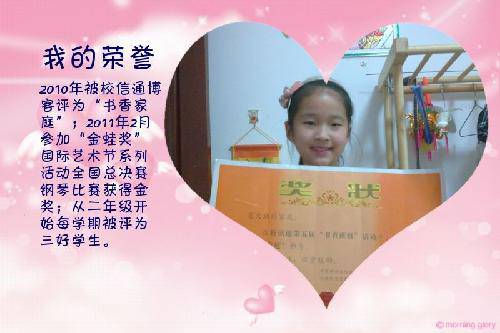 我的荣誉
2010年被校信通博
客评为“书香家
庭”；2011年2月
参加“金蛙奖”
国际艺术节系列
活动全国总决赛
钢琴比赛获得金
奖；从二年级开
始每学期被评为
三好学生。
奖 状
© morning glory